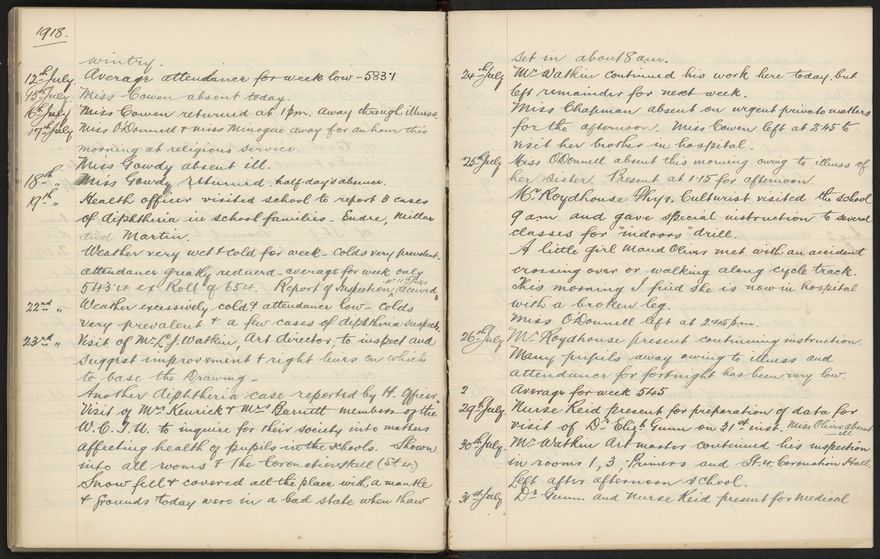 1918.
wintry.
12th July Average attendance for week low - 583.7
15th July Miss Cowen absent today.
16th July Miss Cowen returned at 1 p.m. away through illness.
17th July Miss O'Donnell & Miss Minogue away for an hour this
morning at religious service.
Miss Gowdy absent ill.
18th " Miss Gowdy returned. half day's absence.
19th " Health officer visited school to report 3 cases
of diphtheria in school families - Endre, Millar
and Martin.
Weather very wet & cold for week - Colds very prevalent -
attendance greatly reduced - average for week only
543.4 ex Roll of 654. Report of Inspection, received,
22nd " Weather excessively cold & attendance low - colds
very prevalent & a few cases of diphtheria suspects.
23rd " Visit of Mr L. J. Watkin, Art director, to inspect and
suggest improvement & right lines on which
to base the Drawing -
Another diphtheria case reported by H. Officer.
Visit of Mrs Kenrick & Mrs Barnett members of the
W.C.T.U. to inquire for their society into matters
affecting health of pupils in the schools. Shown
into all rooms & the Coronation Hall (St. iv.)
Snow fell & covered all the place with a mantle
& grounds today were in a bad state when thaw
set in about 8 a.m.
24th July Mr Watkin continued his work here today but
left remainder for next week.
Miss Chapman absent on urgent private matters
for the afternoon. Miss Cowen left at 2.45 to
visit her brother in hospital.
25th July Miss O'Donnell absent this morning owing to illness of
her sister. Present at 1.15 for afternoon.
Mr Roydhouse Phys. Culturist visited the school
9 a.m. and gave special instruction to several
classes for "indoors" drill.
A little girl Maud Oliver met with an accident
crossing over or walking along cycle track.
This morning I find she is now in hospital
with a broken leg.
Miss O'Donnell left at 2.45 p.m.
26th July Mr Roydhouse present continuing instruction.
Many pupils away owing to illness and
attendance for fortnight has been very low.
2 Average for week 545
29th July Nurse Reid present for preparation of data for
visit of Dr Elizth Gunn on 31st inst. Miss Oliver absent
ill
30th July Mr Watkin Art master continued his inspection
in rooms 1, 3, Primers and St. iv. Coronation Hall.
Left after afternoon school.
31st July Dr Gunn and Nurse Reid present for medical